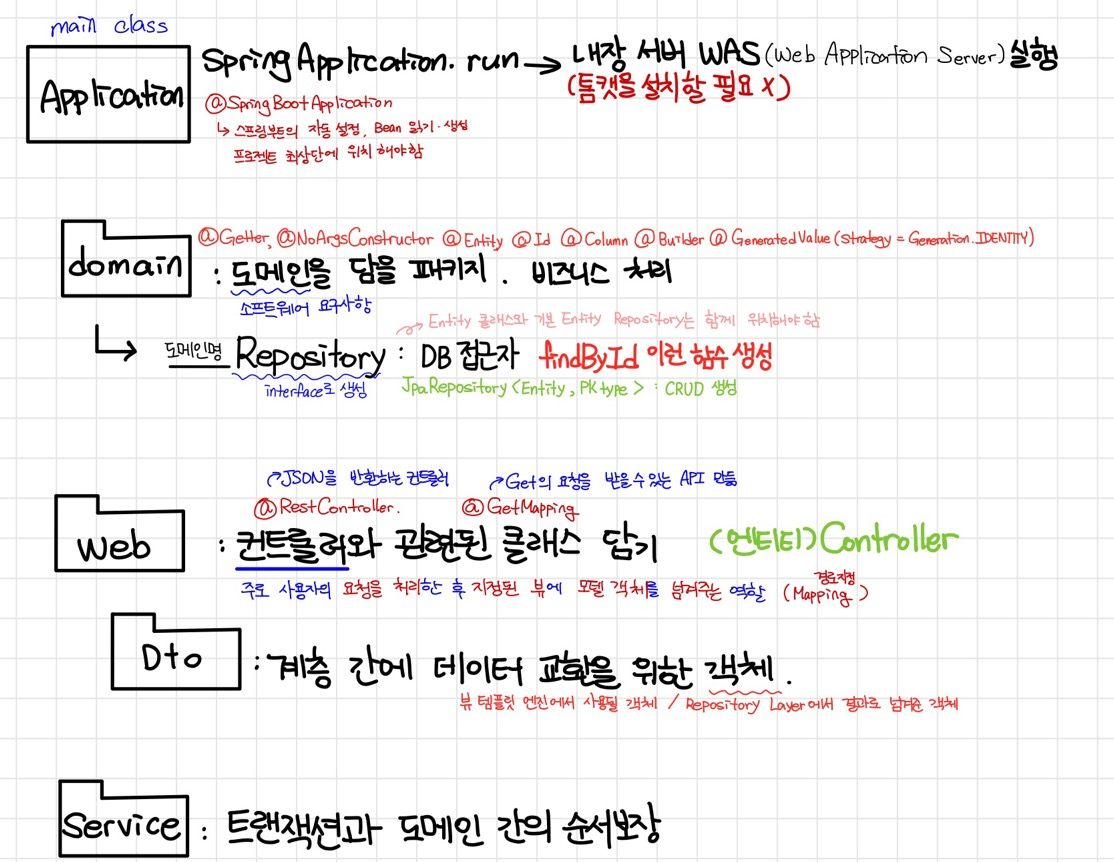 main class
Application
SpringApplication.run → 내장 서버 WAS (Web Application Server) 실행
(톰캣을 설치할 필요 X)
@SpringBootApplication
↳ 스프링부트의 자동 설정, Bean 읽기·생성
프로젝트 최상단에 위치 해야함
@Getter, @NoArgsConstructor @Entity @Id @Column @Builder @GeneratedValue(strategy = Generation.IDENTITY)
domain : 도메인을 담을 패키지. 비즈니스 처리
소프트웨어 요구사항
Entity 클래스와 기본 Entity Repository는 함께 위치해야 함
도메인명 Repository : DB 접근자 findById 이런 함수 생성
interface로 생성
JpaRepository<Entity, PK type> : CRUD 생성
JSON을 반환하는 컨트롤러
Get의 요청을 받을 수 있는 API 만듦
@RestController.
@GetMapping
Web : 컨트롤러와 관련된 클래스 담기 (엔티티)Controller
주로 사용자의 요청을 처리한 후 지정된 뷰에 모델 객체를 넘겨주는 역할 (Mapping)
경로지정
Dto : 계층 간에 데이터 교환을 위한 객체.
뷰 템플릿 엔진에서 사용될 객체 / Repository Layer에서 결과로 넘겨준 객체
Service : 트랜잭션과 도메인 간의 순서보장